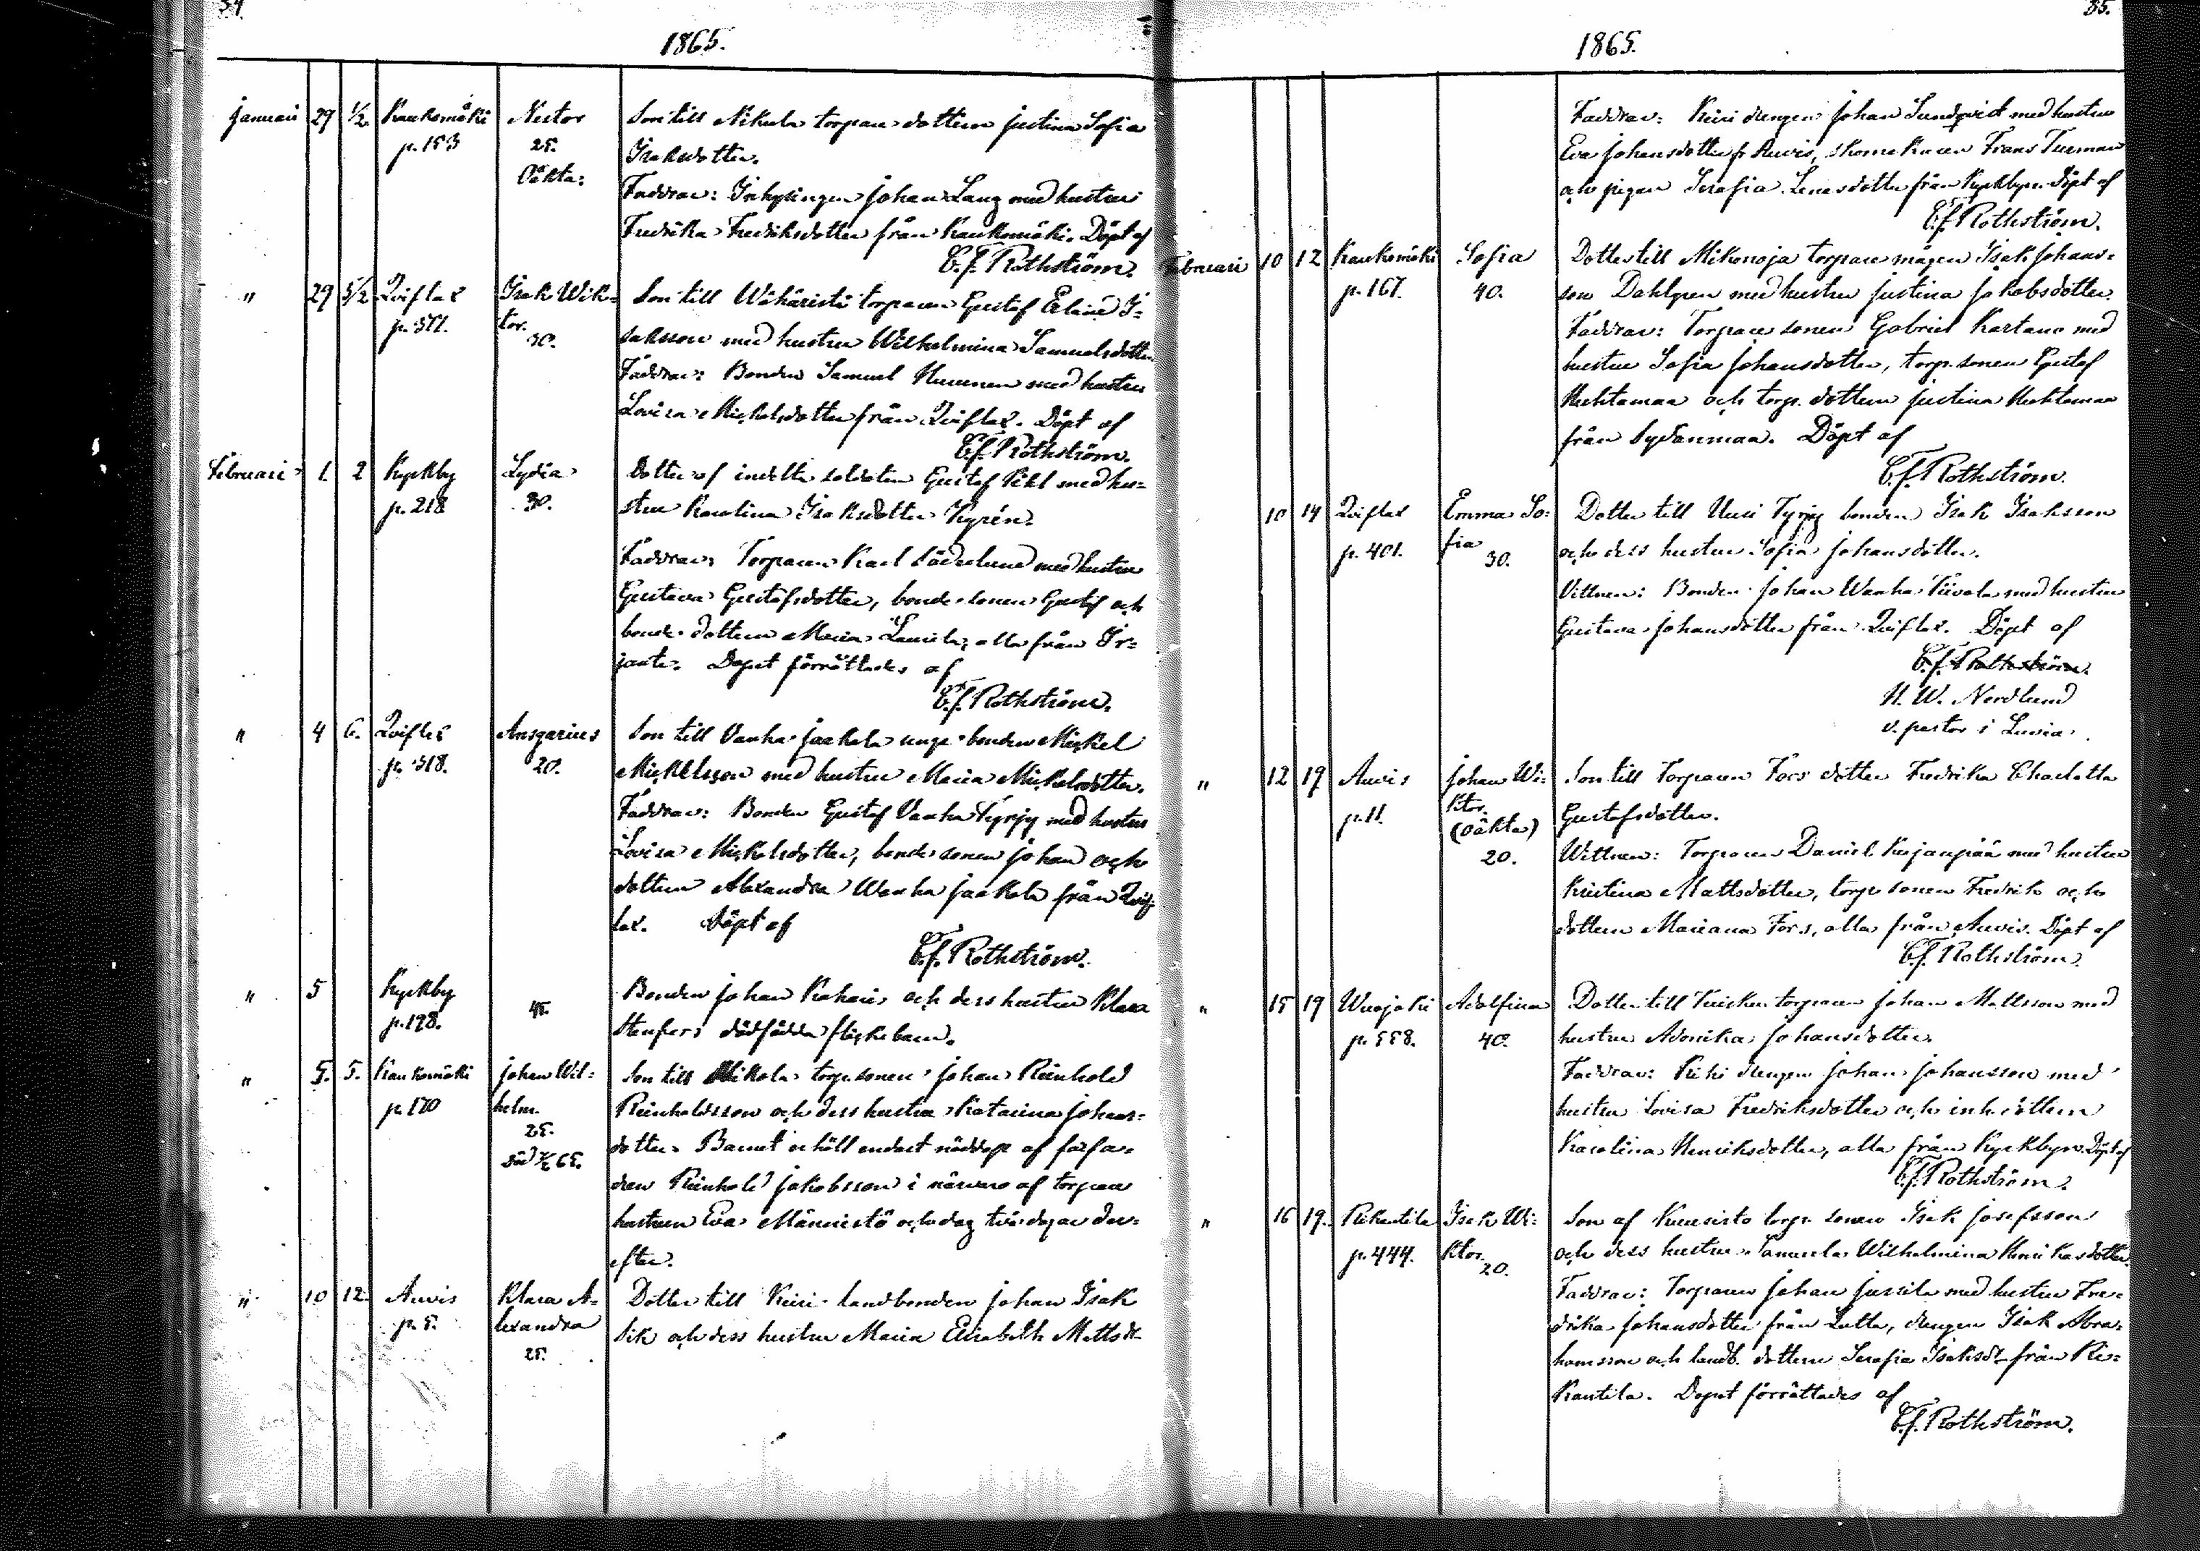 34.
1865.
Januari 29 1/2. Kaukomäki Nestor Son till Nikula torpare dottern Justina Sofia
p. 153 25. Isaksdotter.
Oäkta: Faddrar: Inhysingen Johan Lang med hustru
Fredrika Fredriksdotter från Kaukomäki. Döpt af
C. J. Rothström.
" 29 5/2 Qviflax Isak Wik= Son till torparen Gustaf I=
p. 377. tor. 30. saksson med hustru Wilhelmina Samuelsdotter.
Faddrar: Bonden Samuel med hustru
Lovisa Mickelsdotter från Qviflax. Döpt af
C. J. Rothström.
Februari 1. 2 Kyrkby Lydia Dotter af indelta soldaten Gustaf med hu=
p. 218 30. stru Karolina Isaksdotter Kyrén.
Faddrar: Torparen Karl Söderlund med hustru
Gustava Gustafsdotter, bonde sonen Gustaf och
bonde dottern Maria Lamila, alla från Ir=
jante. Dopet förrättades af
C. J. Rothström.
" 4 6. Qviflax Ansgarius Son till Vanha Jaakola unge bonden Mickel
p. 318. 20. Mickelsson med hustru Maria Mickelsdotter.
Faddrar: Bonden Gustaf Vanha Tyrjy med hustru
Lovisa Mickelsdotter, bonde sonen Johan och
dottern Alexandra Wanha Jaakola från Qvif
lax. Döpt af
C. J. Rothström.
" 5 Kyrkby Bonden Johan Kahari och dess hustru Klara
p. 198. 45. Stenfors dödfödda flickebarn.
" 5. 5. Kaukomäki Johan Wil= Son till Mikola torp. sonen Johan Reinhold
p. 170 helm. Reinholdsson och dess hustru Katarina Johans=
25. dotter. Barnet erhöll endast nöddop af farfa=
död 65. dren Reinhold Jakobsson i närvaro af torpare
hustrun Eva Männistö och dog två dagar der=
efter.
" 10 12. Anvis Klara A= Dotter till Keisi landbonden Johan Isak
p. 5. lexandra och dess hustru Maria Elisabeth Mattsdr
25.
35.
1865.
Faddrar: Keisi drengen Johan Sundqvist med hustru
Eva Johansdotter fr Anvis, skomakaren Frans Turman
och pigan Serafia Lenasdotter från Kyrkbyn. Döpt af
C. J. Rothström.
Februari 10 12 Kaukomäki Sofia Dotter till Mikonoja torpare mågen Isak Johans=
p. 167. 40. son Dahlgren med hustru Justina Jakobsdotter.
Faddrar: Torpare sonen Gabriel Kartano med
hustru Sofia Johansdotter, torp. sonen Gustaf
Huhtamaa och torp. dottern Justina Huhtamaa
från Sydänmaa. Döpt af
C. J. Rothström.
10 14 Qviflax Emma So= Dotter till Uusi Tyrjy bonden Isak Isaksson
p. 401. fia 30. och dess hustru Sofia Johansdotter.
Vittnen: Bonden Johan Wanha Piivola med hustru
Gustava Johansdotter från Qviflax. Döpt af
C. J. Rothström.
H. W. Nordlund
v. pastor i Luvia.
" 12 19 Anvis Johan Wi= Son till Torparen Fors dotter Fredrika Charlotta
p. 11. ktor. Gustafsdotter.
(Oäkta) 20. Wittnen: Torparen Daniel Kujanpää med hustru
Kristina Mattsdotter, torp. sonen Fredrik och
dottern Mariana Fors, alla från Anvis. Döpt af
C. J. Rothström.
" 15 19 Wuojoki Adolfina Dotter till torparen Johan Mattsson med
p. 558. 40. hustru Adonika Johansdotter.
Faddrar: drengen Johan Johansson med
hustru Lovisa Fredriksdotter och inh. dottern
Karolina Henriksdotter, alla från Kyrkbyn. Döpt af
C. J. Rothström.
" 16 19. Rikantila Isak Wi= Son af torp. sonen Isak Josefsson
p. 444. ktor. 20. och dess hustru Samuela Wilhelmina Henriksdotter
Faddrar: Torparen Johan Jussila med hustru Fre=
drika Johansdotter från Lutta, drengen Isak Abra=
hamsson och landb. dottern Serafia Isaksdr från Ri=
kantila. Dopet förrättades af
C. J. Rothström.